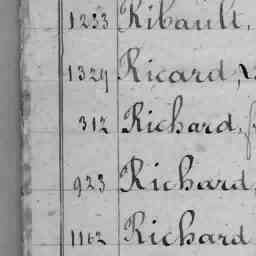 1233 Ribault,
1329 Ricard,
312 Richard,
923 Richard,
1162 Richard